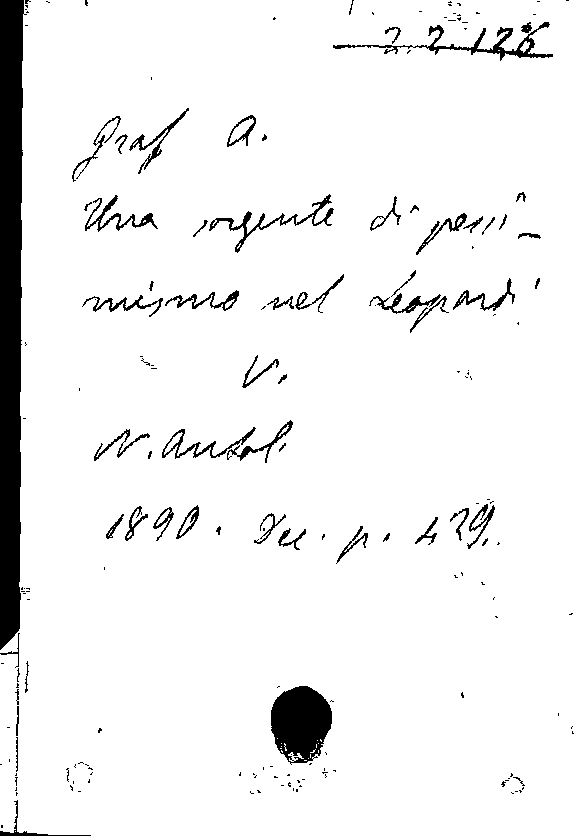 2.2.126
Graf A.
Una sorgente di pessi-
mismo nel Leopardi
V.
N. Antol.
1890. Dec. p. 429.